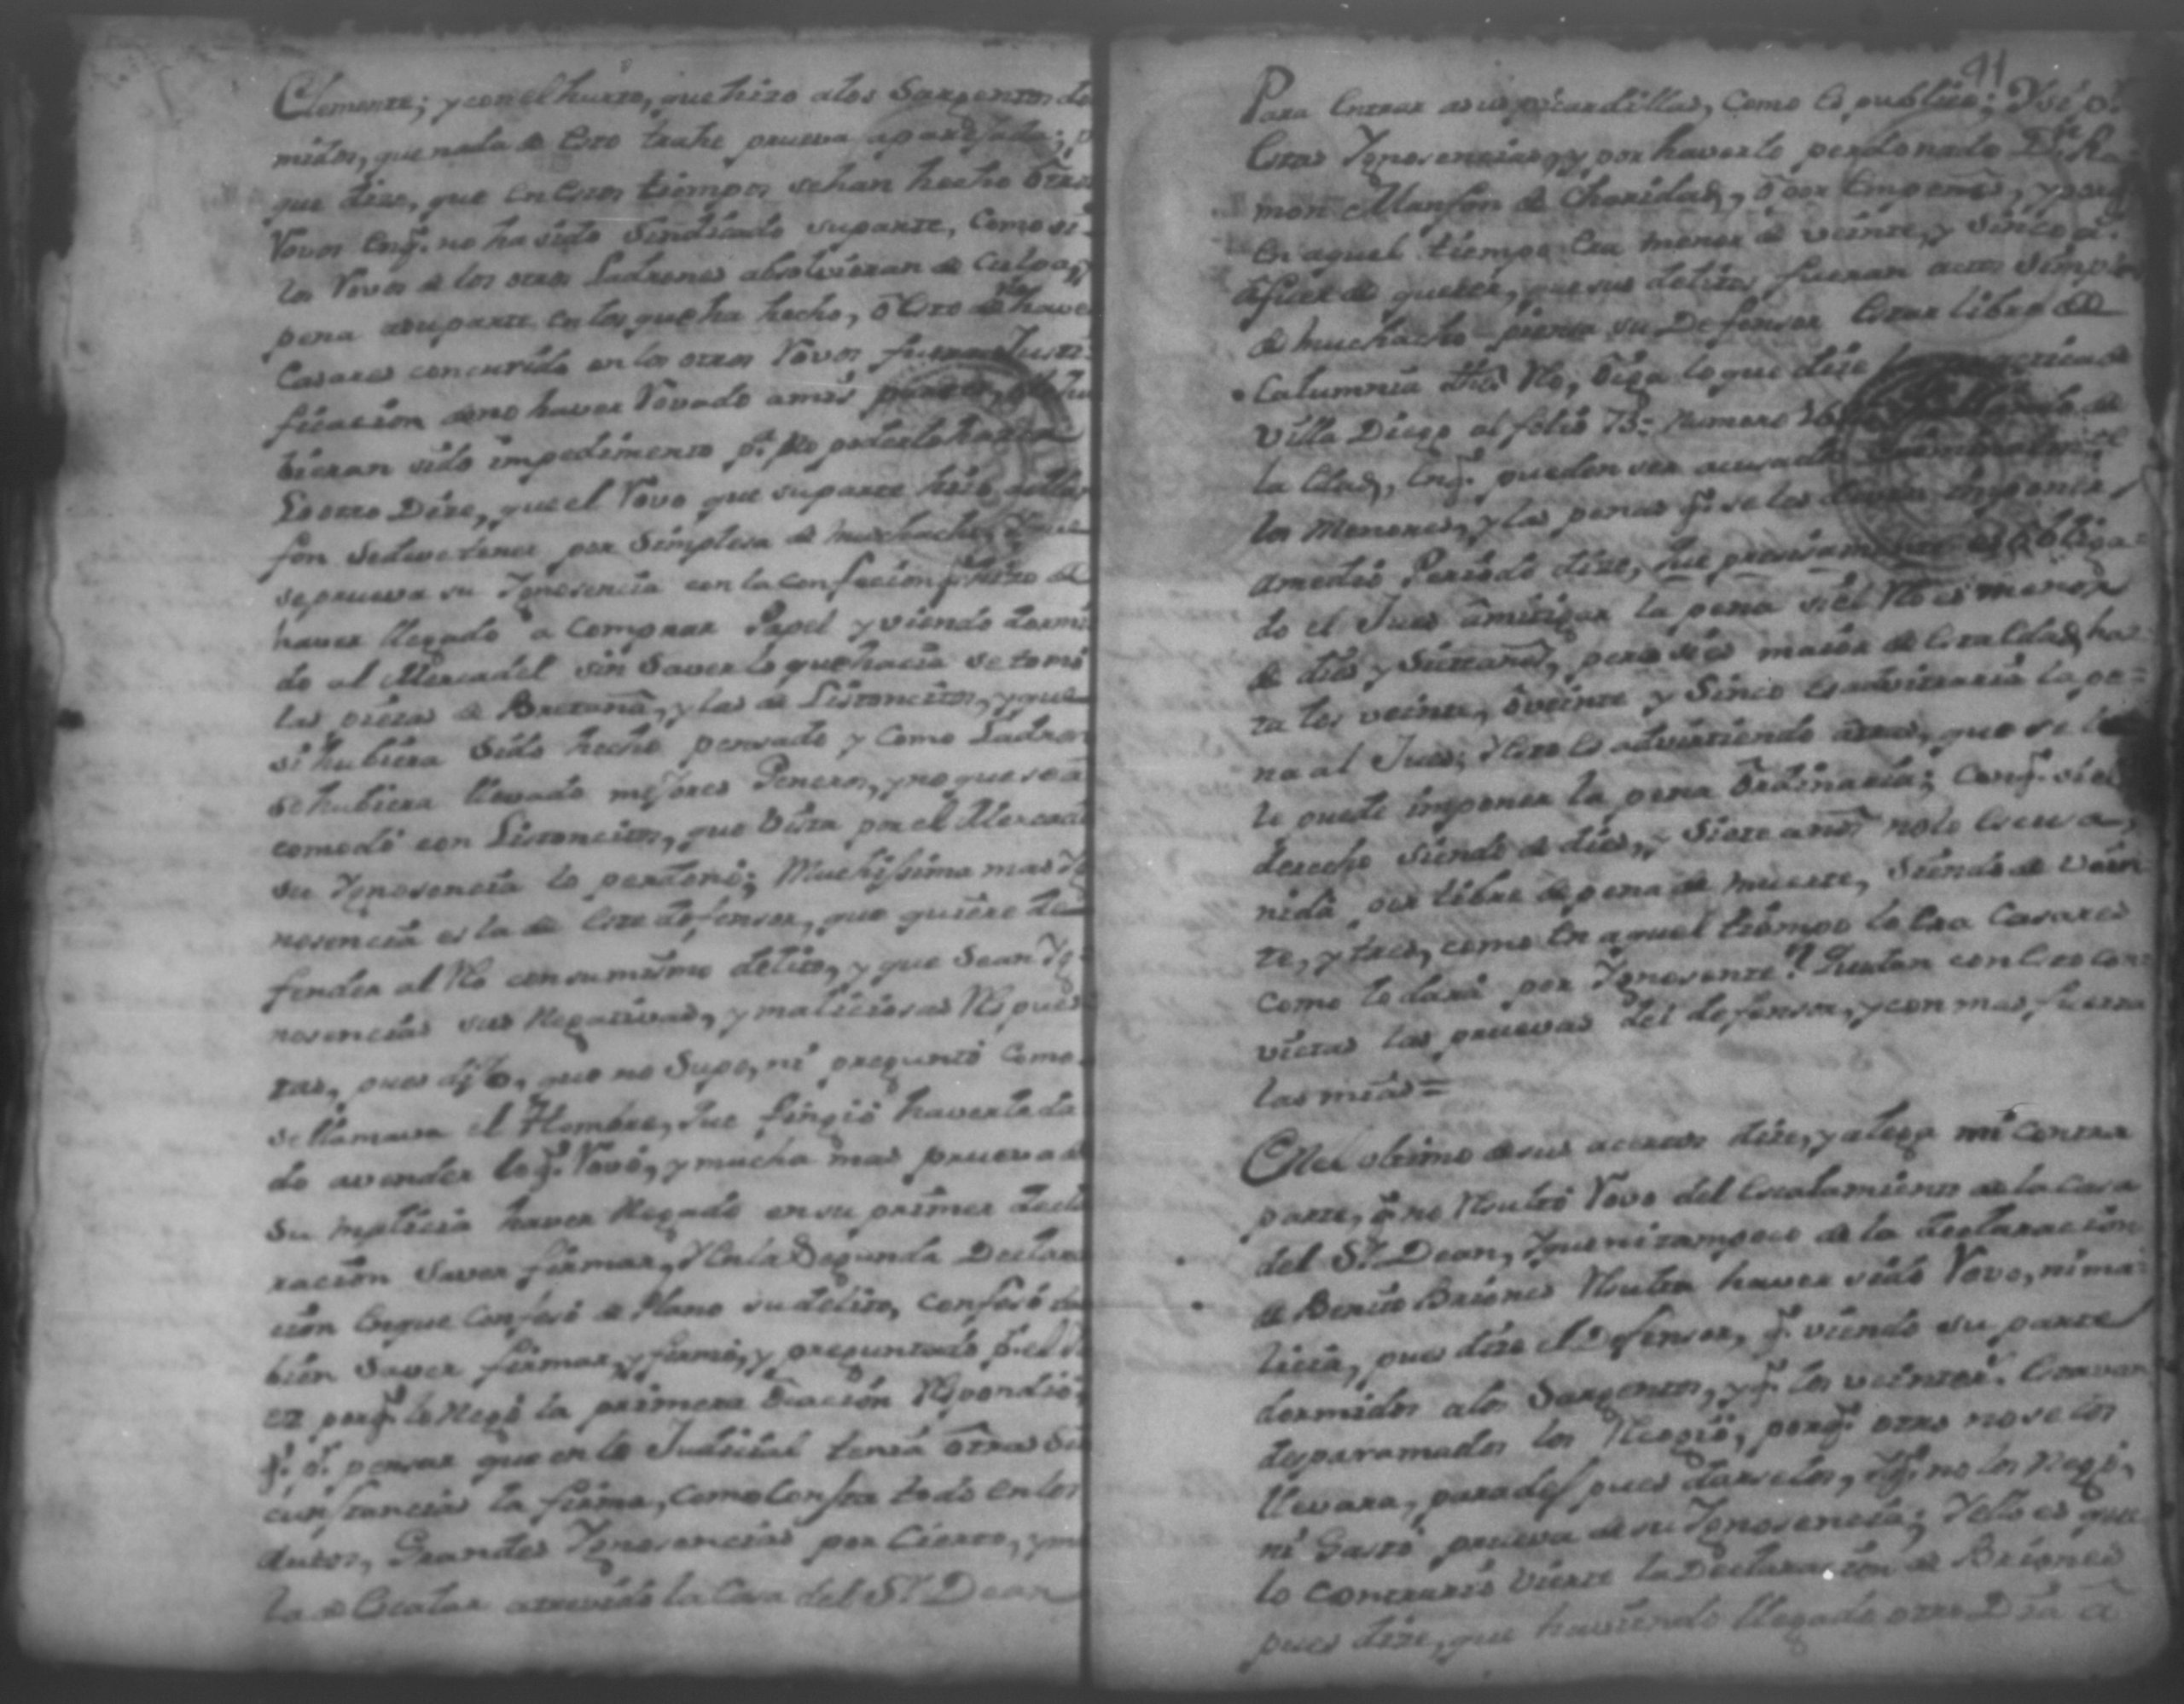 Clemente; y con el hurto, que hizo a los Sargentos do
midos, que nada de esto trahe prueva aparejada;
que dize, que en esos tiempos se han hecho otros
Vovos en q.e no ha sido Sindicado su parte, como si
los Vovos de los otros Ladrones absolvieran de Culpa, y
pena a su parte en los que ha hecho, ô esto de haver
Casares concurrido en los otros Vovos fuera Justi-
ficacion de no haver Vovado a mis
bieran sido impedimento p.a no poderlo hazer
Lo otro Dize, que el Vovo que su parte hizo
fon se deve tener por Simplesa de muchacho,
se prueva su Ygnosencia con la confecion q.e hizo de
haver llegado a comprar Papel y viendo dormi
do al Mercadel sin Saver lo que hacia se tomó
las piezas de Bretaña, y las de Listoncitos, y que
si hubiera sido hecho pensado y como Ladron
se hubiera llevado mejores Generos, y no que se a
comodó con Listoncitos, que vista por el Mercad
su Ygnosencia lo perdonó; Muchissima mas Yg
nosencia es la de este defensor, que quiere de
fender al Rô con su mismo delito, y que Sean Yg
nosencias sus Negativas, y maliciosas Respues
tas, pues dijo, que no Supo, ni preguntó como
se llamava el Hombre, que fingió haverle da
do a vender lo q.e Vovó, y mucha mas prueva de
su malicia haver Negado en su primer decla
racion saver firmar, Y en la Segunda Declara
cion en que Confesó de Plano su delito, confesó tan
bien saver firmar, y firmó, y preguntado p.r el Ju
ez por q.e lo Negó la primera ocacion Respondió,
q.e p.r pensar que en lo Judicial tenia otras Cir
cunstancias la firma, como consta todo en los
Autos, Grandes Ygnosencias por Cierto, y
la de Escalar atrevido la Casa del S.r Dean
91
Para entrar a sus picardillas, como es publico; Y si p.r
estas Ygnosencias, y por haverlo perdonado D.n Ra-
mon Manfon de Charidad, ô por Empeños, y porq.e
en aquel tiempo era menor de veinte, y Sinco a.s
â fuer de querer, que sus delitos fueran actos Simples
de muchacho piensa su Defensor estar libre de
Calumnia dicho Rô, Oiga lo que dize
Villa Diego al folio 73: numero
la Edad, en q.e pueden ser acusados
los Menores, y las penas q.e se les deven imponer
A medio Periodo dize, que precisamente es obliga-
do el Jues â mitigar la pena si el Rô es menor
de dies y Siete años, pero si es maior de esta Edad, has
ta los veinte, ô veinte y Sinco es advitraria la pe-
na al Jues; Y esto es advirtiendo atras, que se le
le puede imponer la pena Ordinaria; Con q.e si el
derecho siendo de dies, y Siete años no lo escusa,
nida ser libre de pena de muerte, Siendo de vein
te, y tres, como en aquel tiempo lo era Casares
como lo dara por Ygnosente? Quedan con esto con
victas las pruevas del defensor, y con mas fuerza
las mias=
En el ultimo de sus acertos dize, y alega mi contra
parte, q.e no Resultó Vovo del Escalamiento de la Casa
del S.r Dean, Y que ni tampoco de la declaracion
de Benito Briones Resulta haver sido Vovo, ni ma-
licia, pues dize el Defensor, q.e viendo su parte
dormidos a los Sargentos, y q.e los veinte p.s estavan
desparamados los Recogió, por q.e otro no se los
llevara, para despues darselos, Y q.e no los Negó,
ni Gastó prueva de su Ygnosencia; Y ello es que
lo contrario vierte la Declaracion de Briones
pues dize, que haviendo llegado otro Dia â